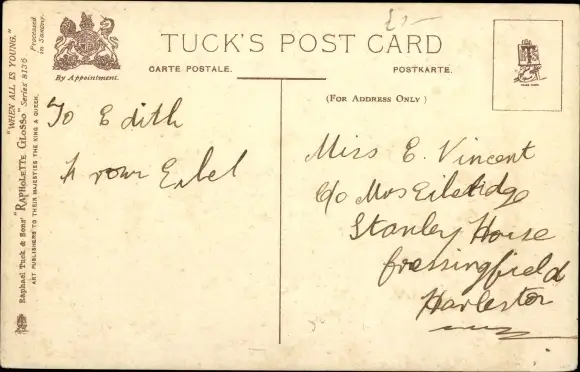 £,-
By Appointment.
TUCK'S POST CARD
CARTE POSTALE.
POSTKARTE.
(FOR ADDRESS ONLY)
TRADE MARK
"WHEN ALL IS YOUNG."
Processed in Saxony.
Raphael Tuck & Sons' "RAPHOLETTE GLOSSO" Series 8136
ART PUBLISHERS TO THEIR MAJESTIES THE KING & QUEEN.
To Edith
From
Miss E. Vincent
c/o Mrs
Stanley House
Fressingfield
Harleston